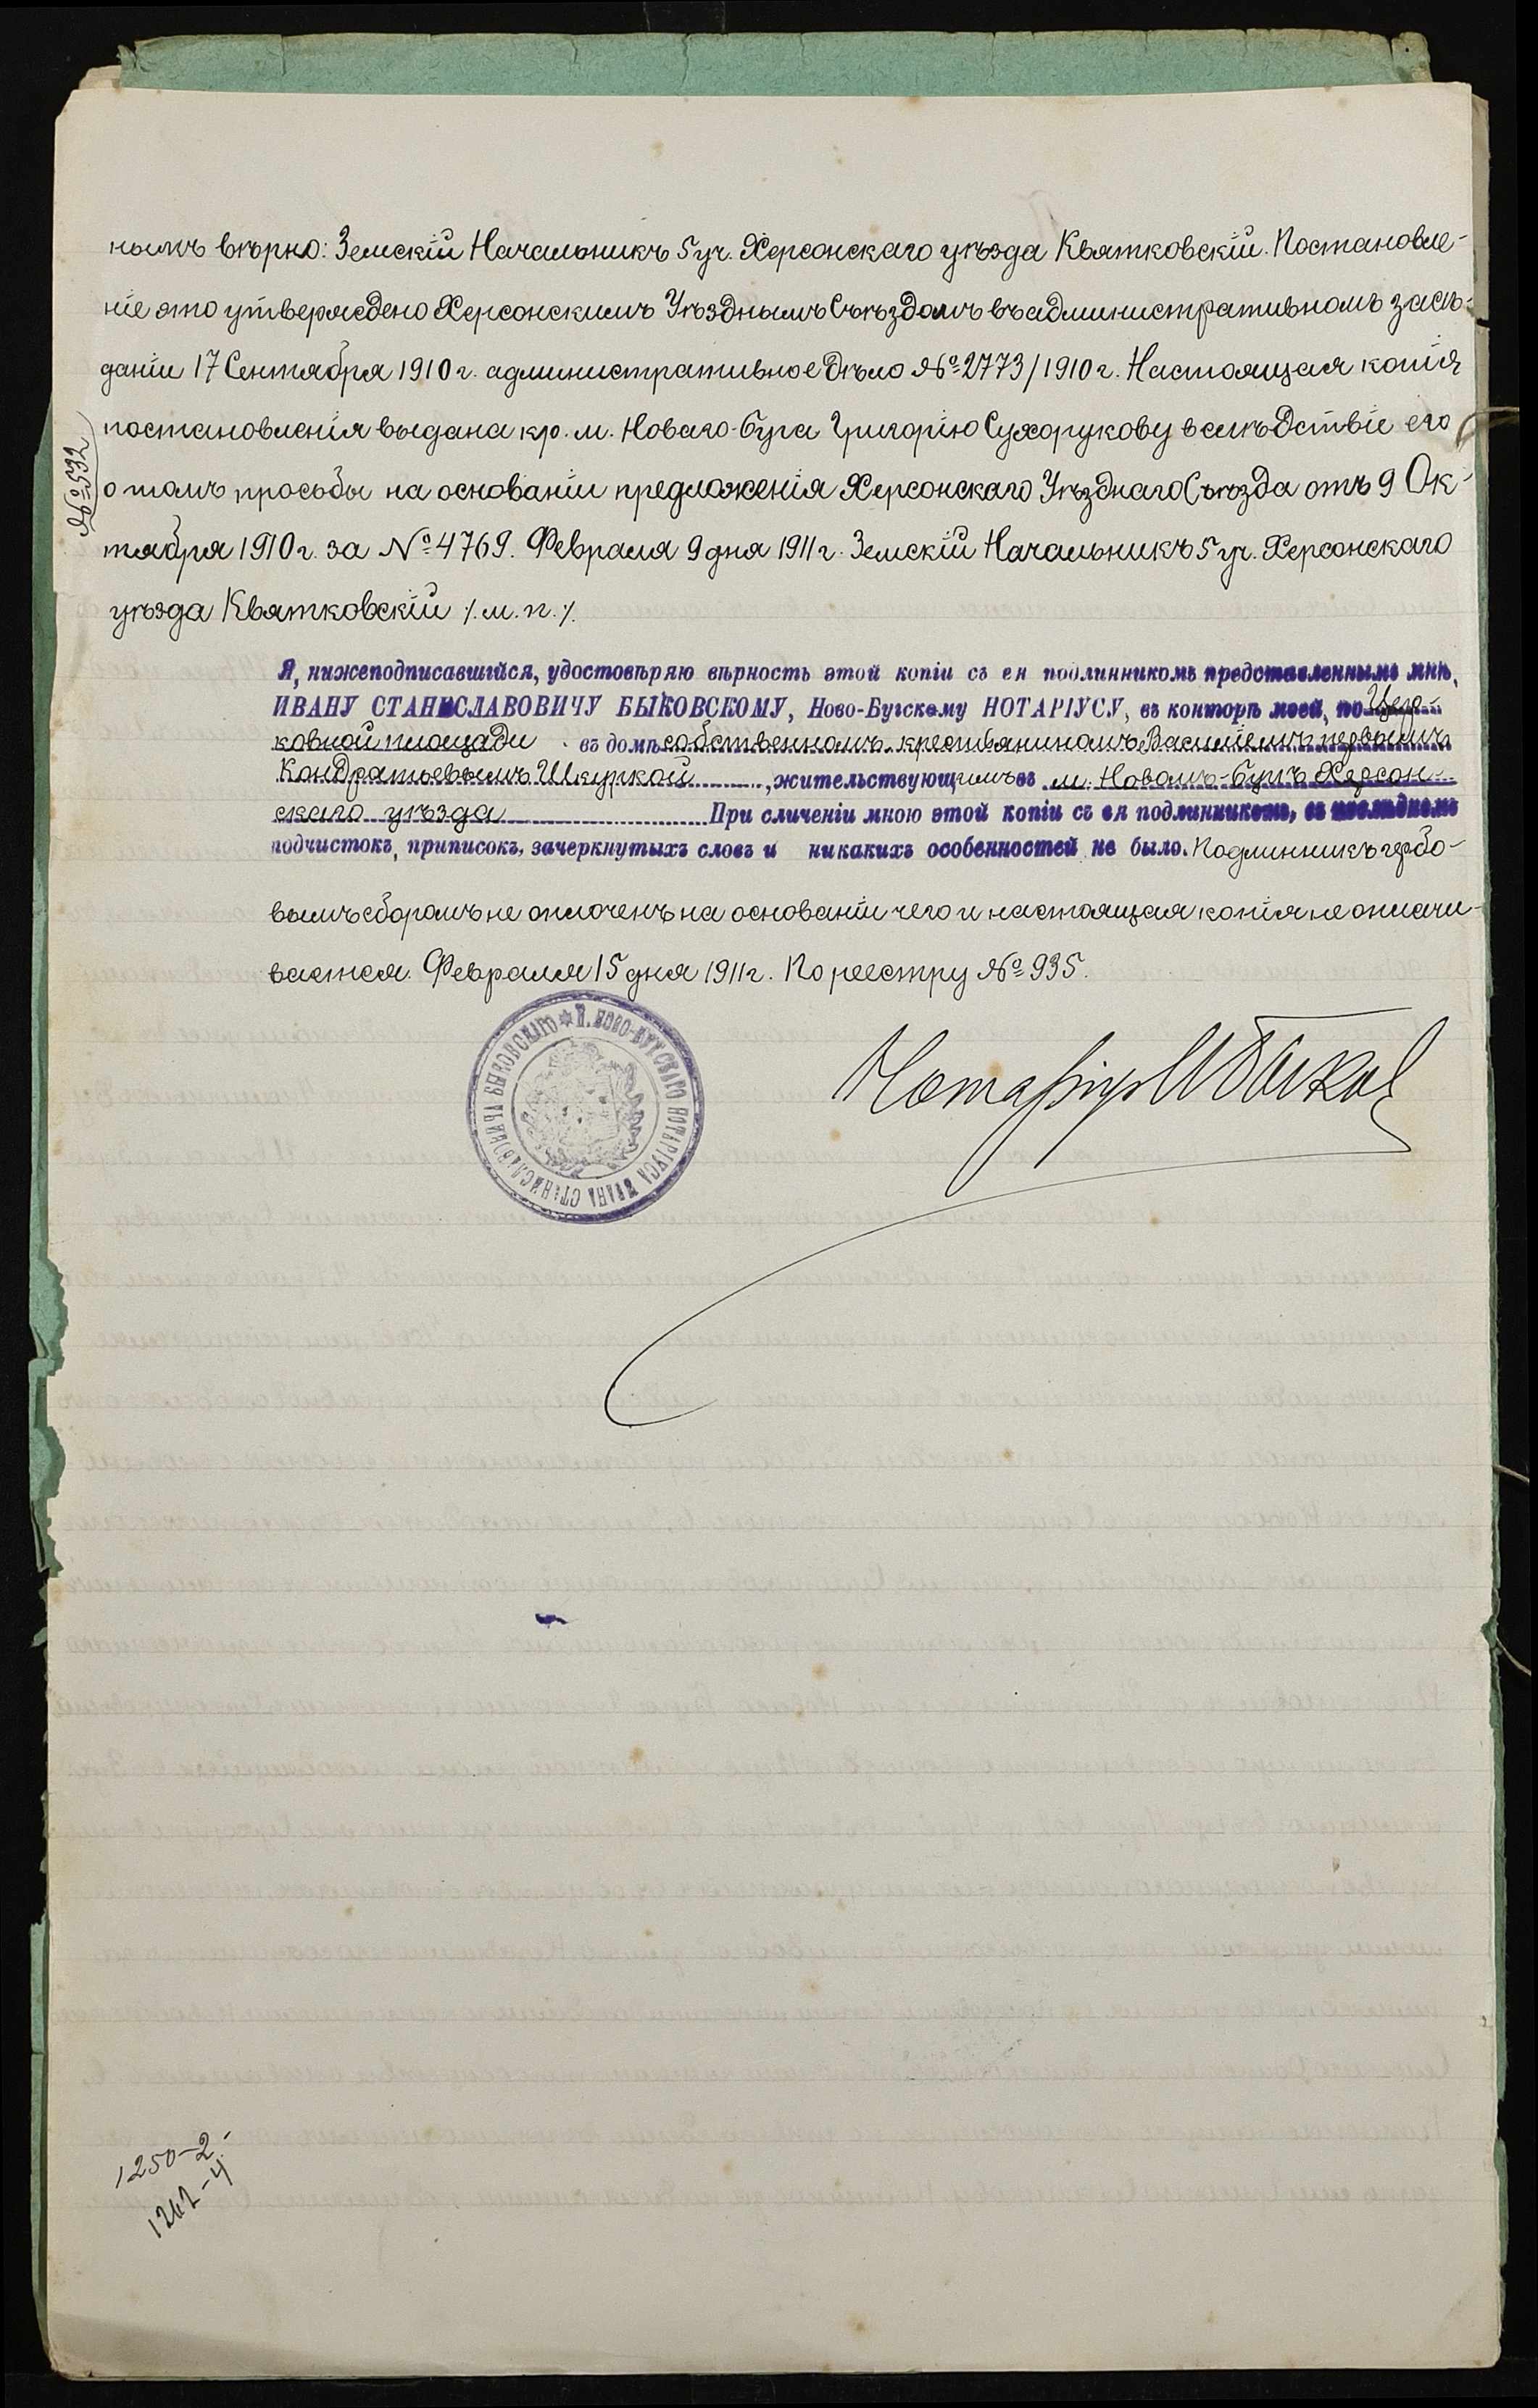 нымъ вѣрно: Земскій Начальникъ 5 уч. Херсонскаго уѣзда Квятковскій. Постановле-
ніе это утверждено Херсонскимъ Уѣзднымъ Съѣздомъ въ административномъ засѣ-
даніи 17 Сентября 1910 г. административное дѣло № 2773/1910 г. Настоящая копія
постановленія выдана кр. м. Новаго-Буга Григорію Сухорукову вслѣдствіе его
о томъ просьбы на основаніи предложенія Херсонскаго Уѣзднаго Съѣзда отъ 9 Ок-
тября 1910 г. за № 4769. Февраля 9 дня 1911 г. Земскій Начальникъ 5 уч. Херсонскаго
уѣзда Квятковскій /. м. п. /.
№ 532
Я, нижеподписавшійся, удостовѣряю вѣрность этой копіи съ ея подлинникомъ представленнымъ мнѣ,
ИВАНУ СТАНИСЛАВОВИЧУ БЫКОВСКОМУ, Ново-Бугскому НОТАРІУСУ, въ конторѣ моей, по Цер-
ковной площади въ домѣ собственномъ крестьяниномъ Василіемъ первымъ
Кондратьевымъ Шкуркой, жительствующимъ въ м. Новомъ-Бугѣ Херсон-
скаго уѣзда При сличеніи мною этой копіи съ ея подлинникомъ, въ послѣднемъ
подчистокъ, приписокъ, зачеркнутыхъ словъ и никакихъ особенностей не было. Подлинникъ гербо-
вымъ сборомъ не оплоченъ на основаніи чего и настоящая копія не оплачи-
вается. Февраля 15 дня 1911 г. По реестру № 935.
П. НОВО-БУГСКАГО НОТАРІУСА ИВАНА СТАНИСЛАВОВИЧА БЫКОВСКАГО
Нотаріусъ И Быков
1250-2-
1262-4